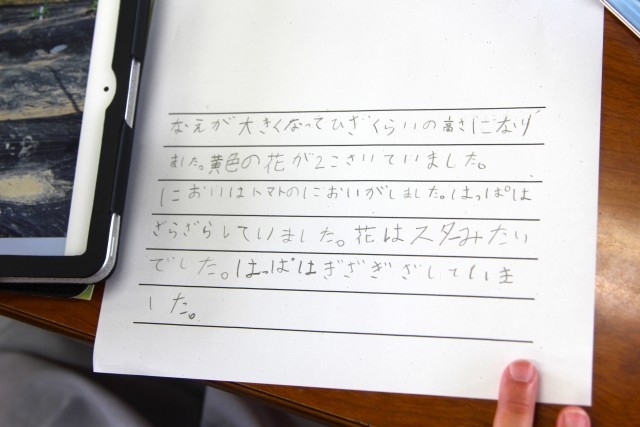 なえが大きくなってひざくらいの高さになり
ました。黄色の花が2こさいていました。
においはトマトのにおいがしました。はっぱは
ざらざらしていました。花はスターみたい
でした。はっぱはぎざぎざしていま
した。